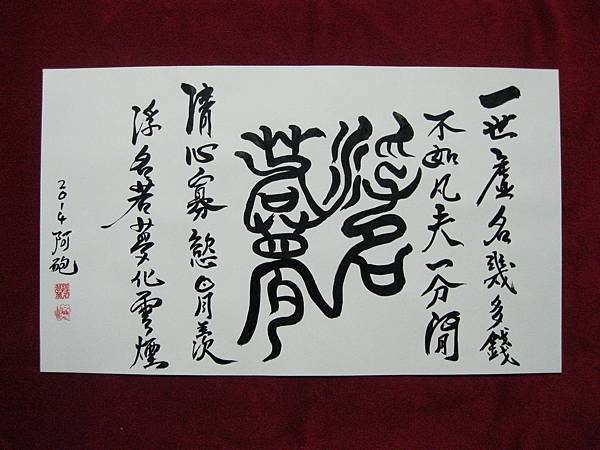 一世虛名幾多錢
不如凡夫一分閒
浮名
若夢
清心寡慾日月羨
浮名若夢化雲煙
2014 阿砲